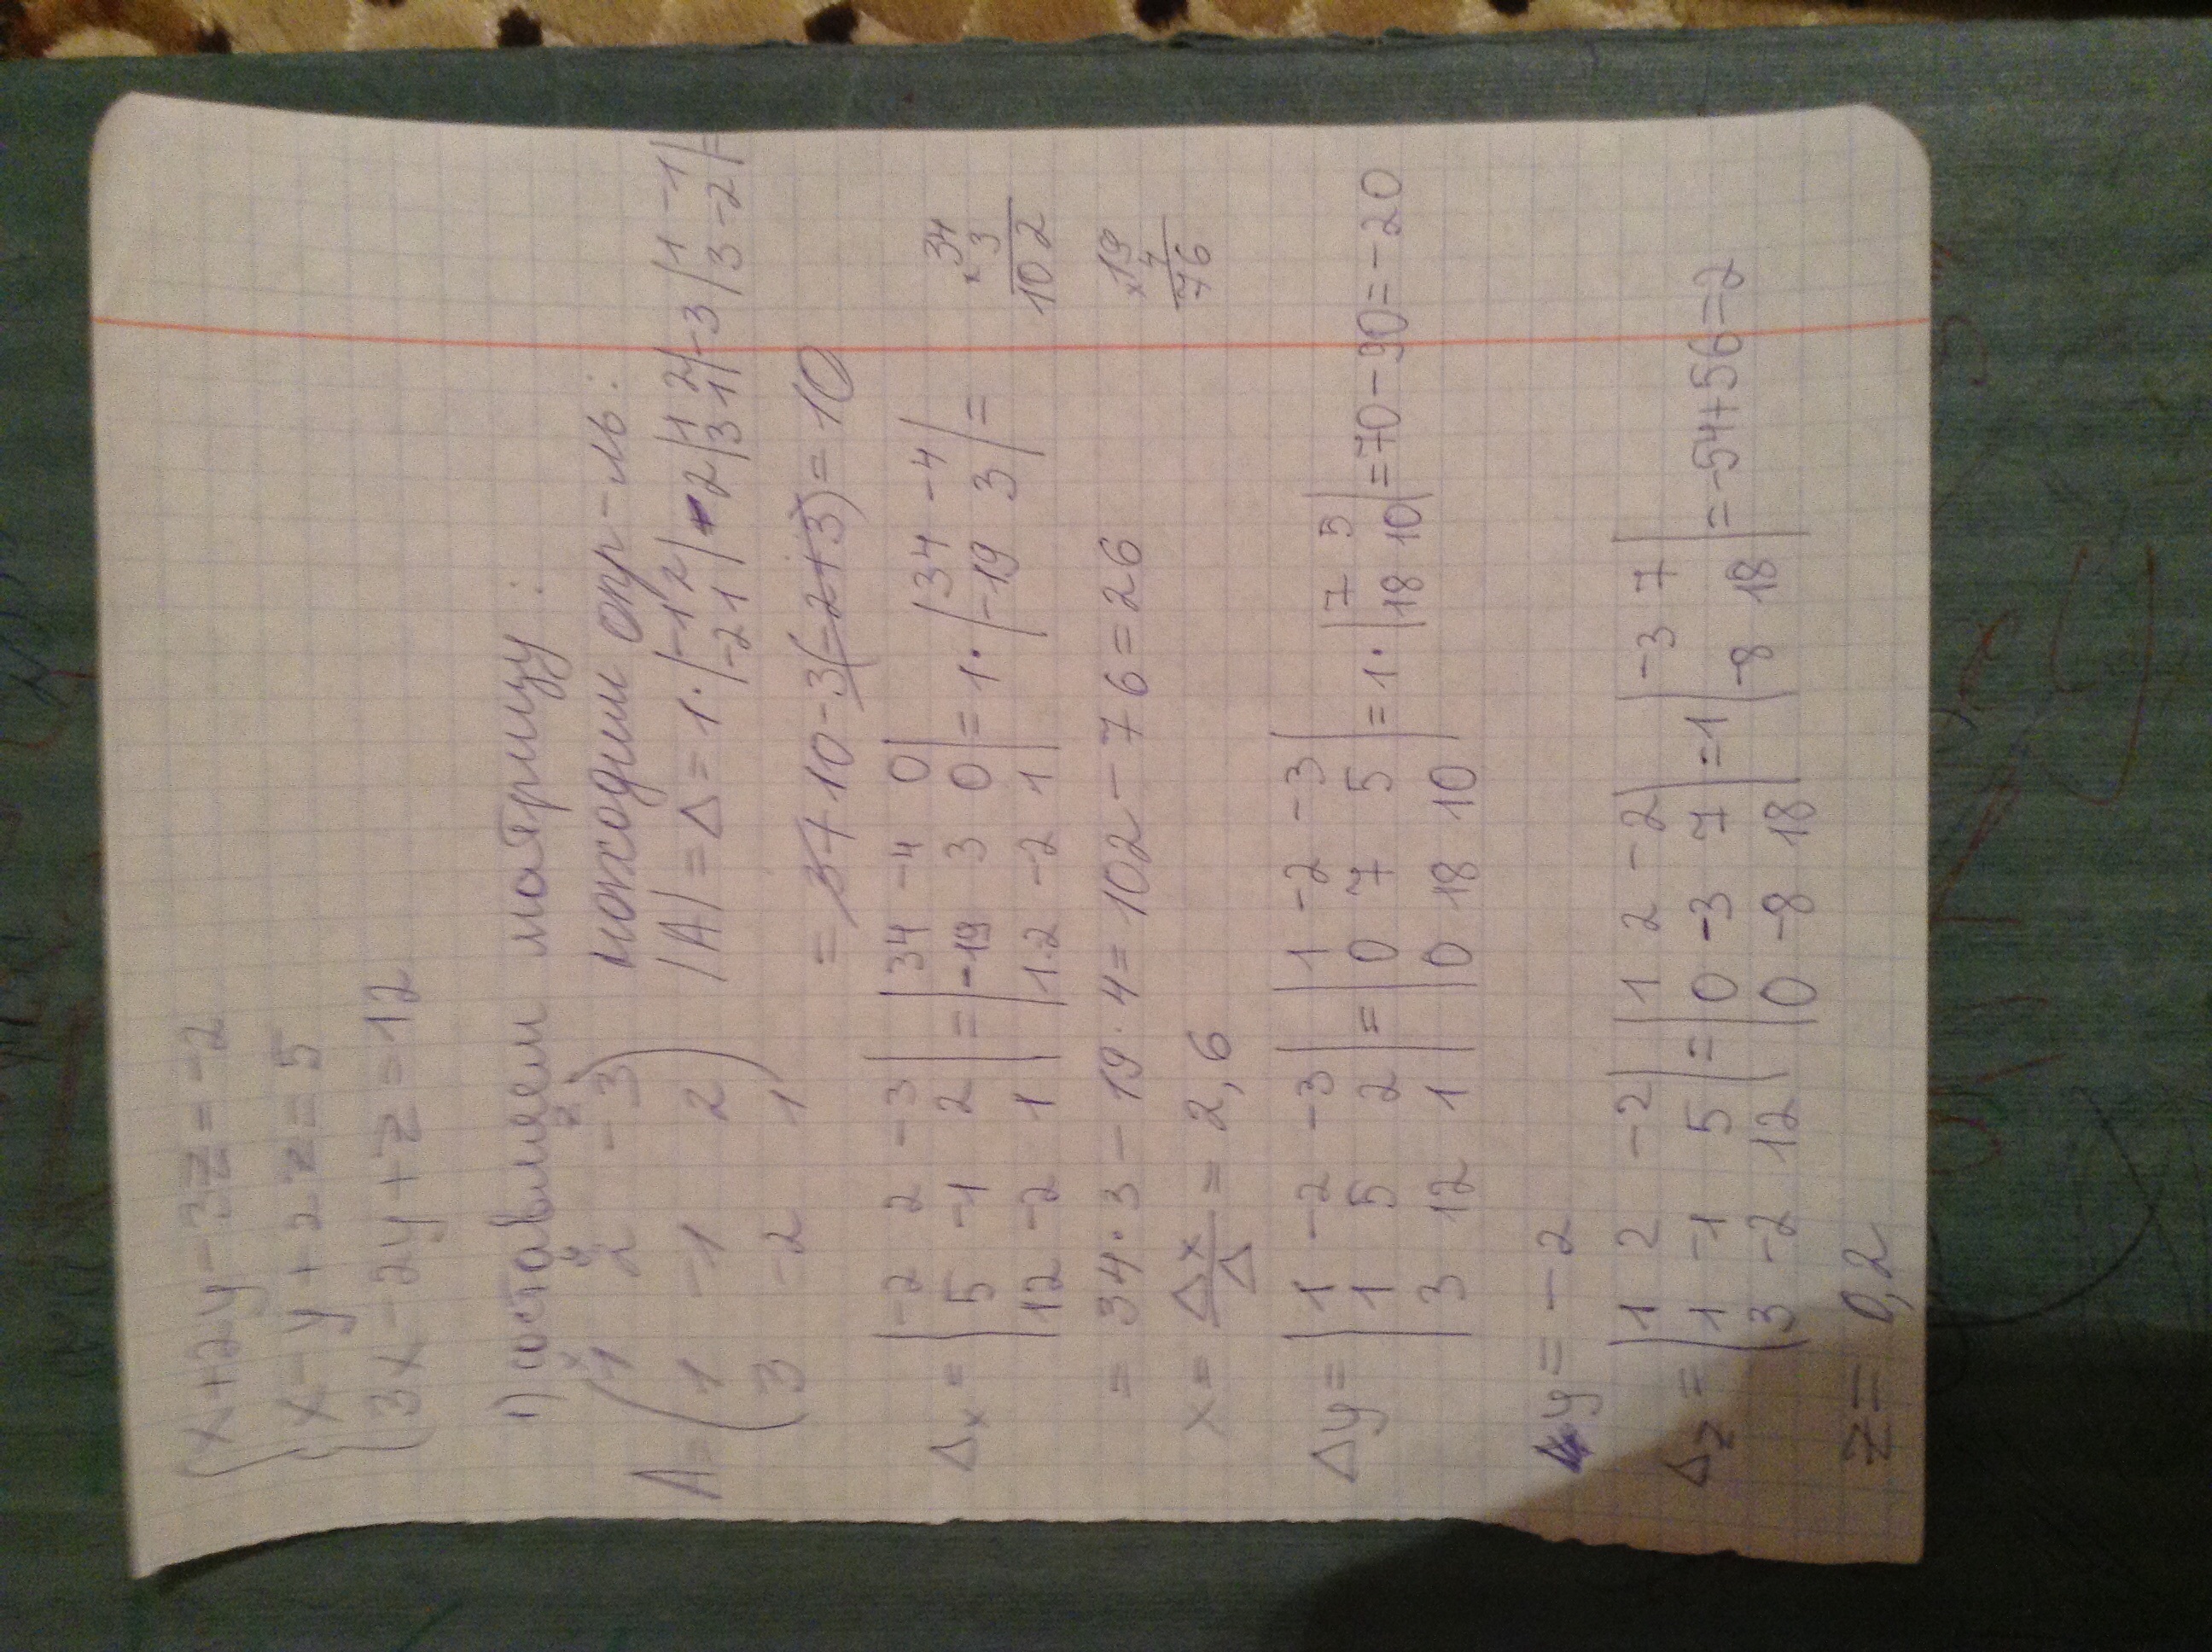 x+2y-3z=-2
x-y+2z=5
3x-2y+z=12
1) составляем матрицу:
находим опр-ль:
x y z
A= (1 2 -3
1 -1 2
3 -2 1)
|A| = Δ = 1·|-1 2
-2 1| -2|1 2
3 1| -3|1 -1
3 -2| =
= 10 = 10
Δx = |-2 2 -3
5 -1 2
12 -2 1| = |34 -4 0
-19 3 0
12 -2 1| = 1·|34 -4
-19 3| =
34
×3
102
= 34·3 - 19·4 = 102 - 76 = 26
×19
4
76
x = Δx/Δ = 2,6
Δy = |1 -2 -3
1 5 2
3 12 1| = |1 -2 -3
0 7 5
0 18 10| = 1·|7 5
18 10| = 70 - 90 = -20
y = -2
Δz = |1 2 -2
1 -1 5
3 -2 12| = |1 2 -2
0 -3 7
0 -8 18| = 1|-3 7
-8 18| = -54+56=2
z = 0,2